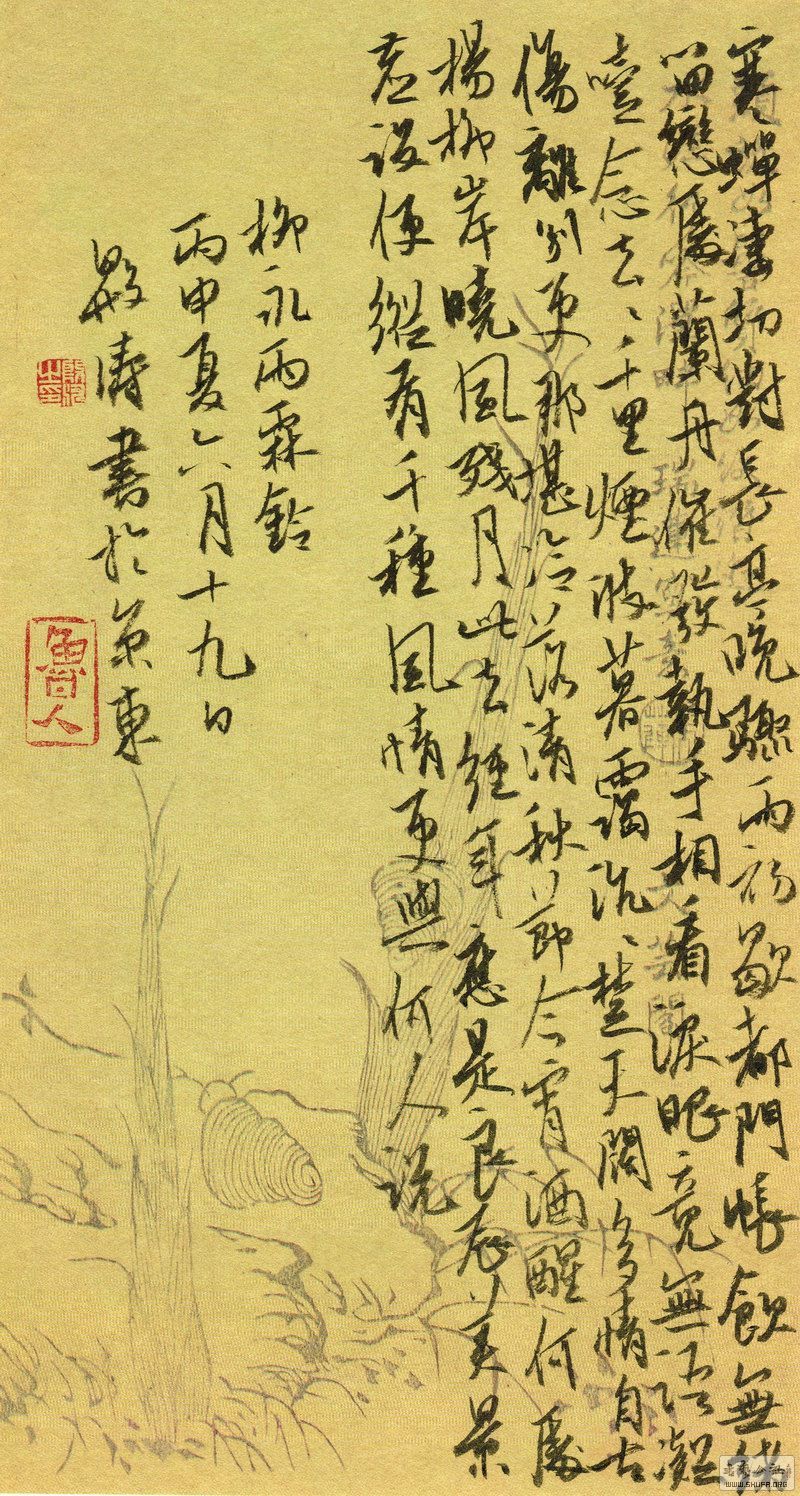 寒蟬淒切對長亭晚驟雨初歇都門帳飲無緒
留戀處蘭舟催發執手相看淚眼竟無語凝
噎念去、千里煙波暮靄沉、楚天闊多情自古
傷離別更那堪冷落清秋節今宵酒醒何處
楊柳岸曉風殘月此去經年應是良辰美景
虛設便縱有千種風情更與何人說
柳永雨霖鈴
丙申夏六月十九日
殿濤書於京東
魯人
WWW.SHUFA.ORG